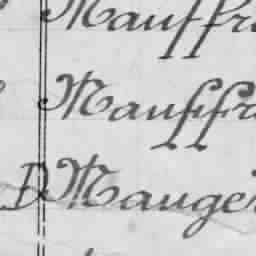 Mauffr
Mauffra
D Mauger